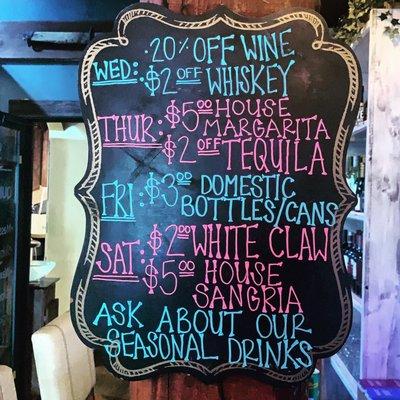 WED: 20% OFF WINE
$2 OFF WHISKEY
THUR: $5.00 HOUSE
MARGARITA
$2 OFF TEQUILA
FRI: $3.00 DOMESTIC
BOTTLES/CANS
SAT: $2.00 WHITE CLAW
$5.00 HOUSE
SANGRIA
ASK ABOUT OUR
SEASONAL DRINKS